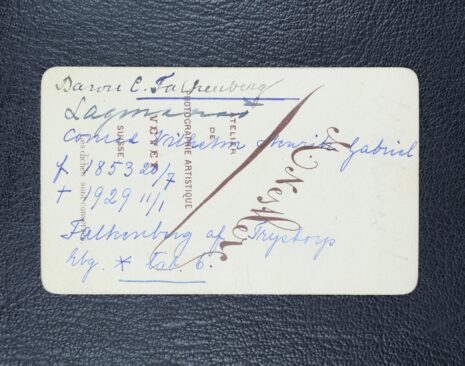 Baron C. Falkenberg
Lagmannen
Conrad Wilhelm Henrik Gabriel
f 1853 28/7
† 1929 11/1
Falkenberg af Trystorp
Elg. * Tab. 6.
ATELIER
DE
PHOTOGRAPHIE ARTISTIQUE
VEVEY
SUISSE
Les clichés sont conservés